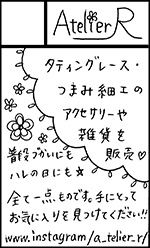 Atelier R
タティングレース・
つまみ細工の
アクセサリーや
雑貨を
販売♡
普段づかいにも
ハレの日にも☆
全て一点ものです。手にとって
お気に入りを見つけてください!!
www.instagram/a_telier_r/